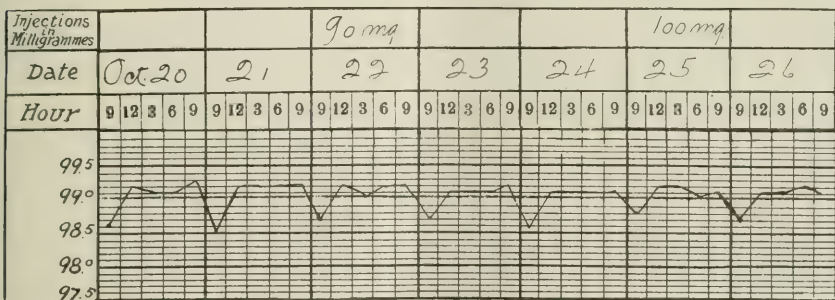 Injections
in
Milligrammes 90 mg 100 mg
Date Oct. 20 21 22 23 24 25 26
Hour 9 12 3 6 9 9 12 3 6 9 9 12 3 6 9 9 12 3 6 9 9 12 3 6 9 9 12 3 6 9 9 12 3 6 9
99.5
99.0
98.5
98.0
97.5